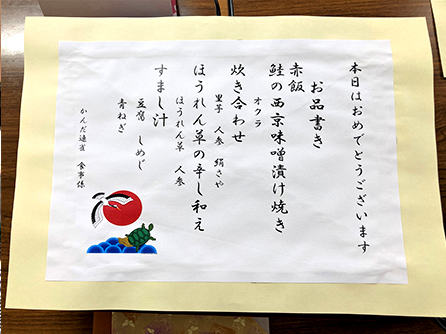 本日はおめでとうございます
お品書き
赤飯
鮭の西京味噌漬け焼き
オクラ
炊き合わせ
里芋 人参 絹さや
ほうれん草の辛し和え
ほうれん草 人参
すまし汁
豆腐 しめじ
青ねぎ
かんだ連雀 食事係